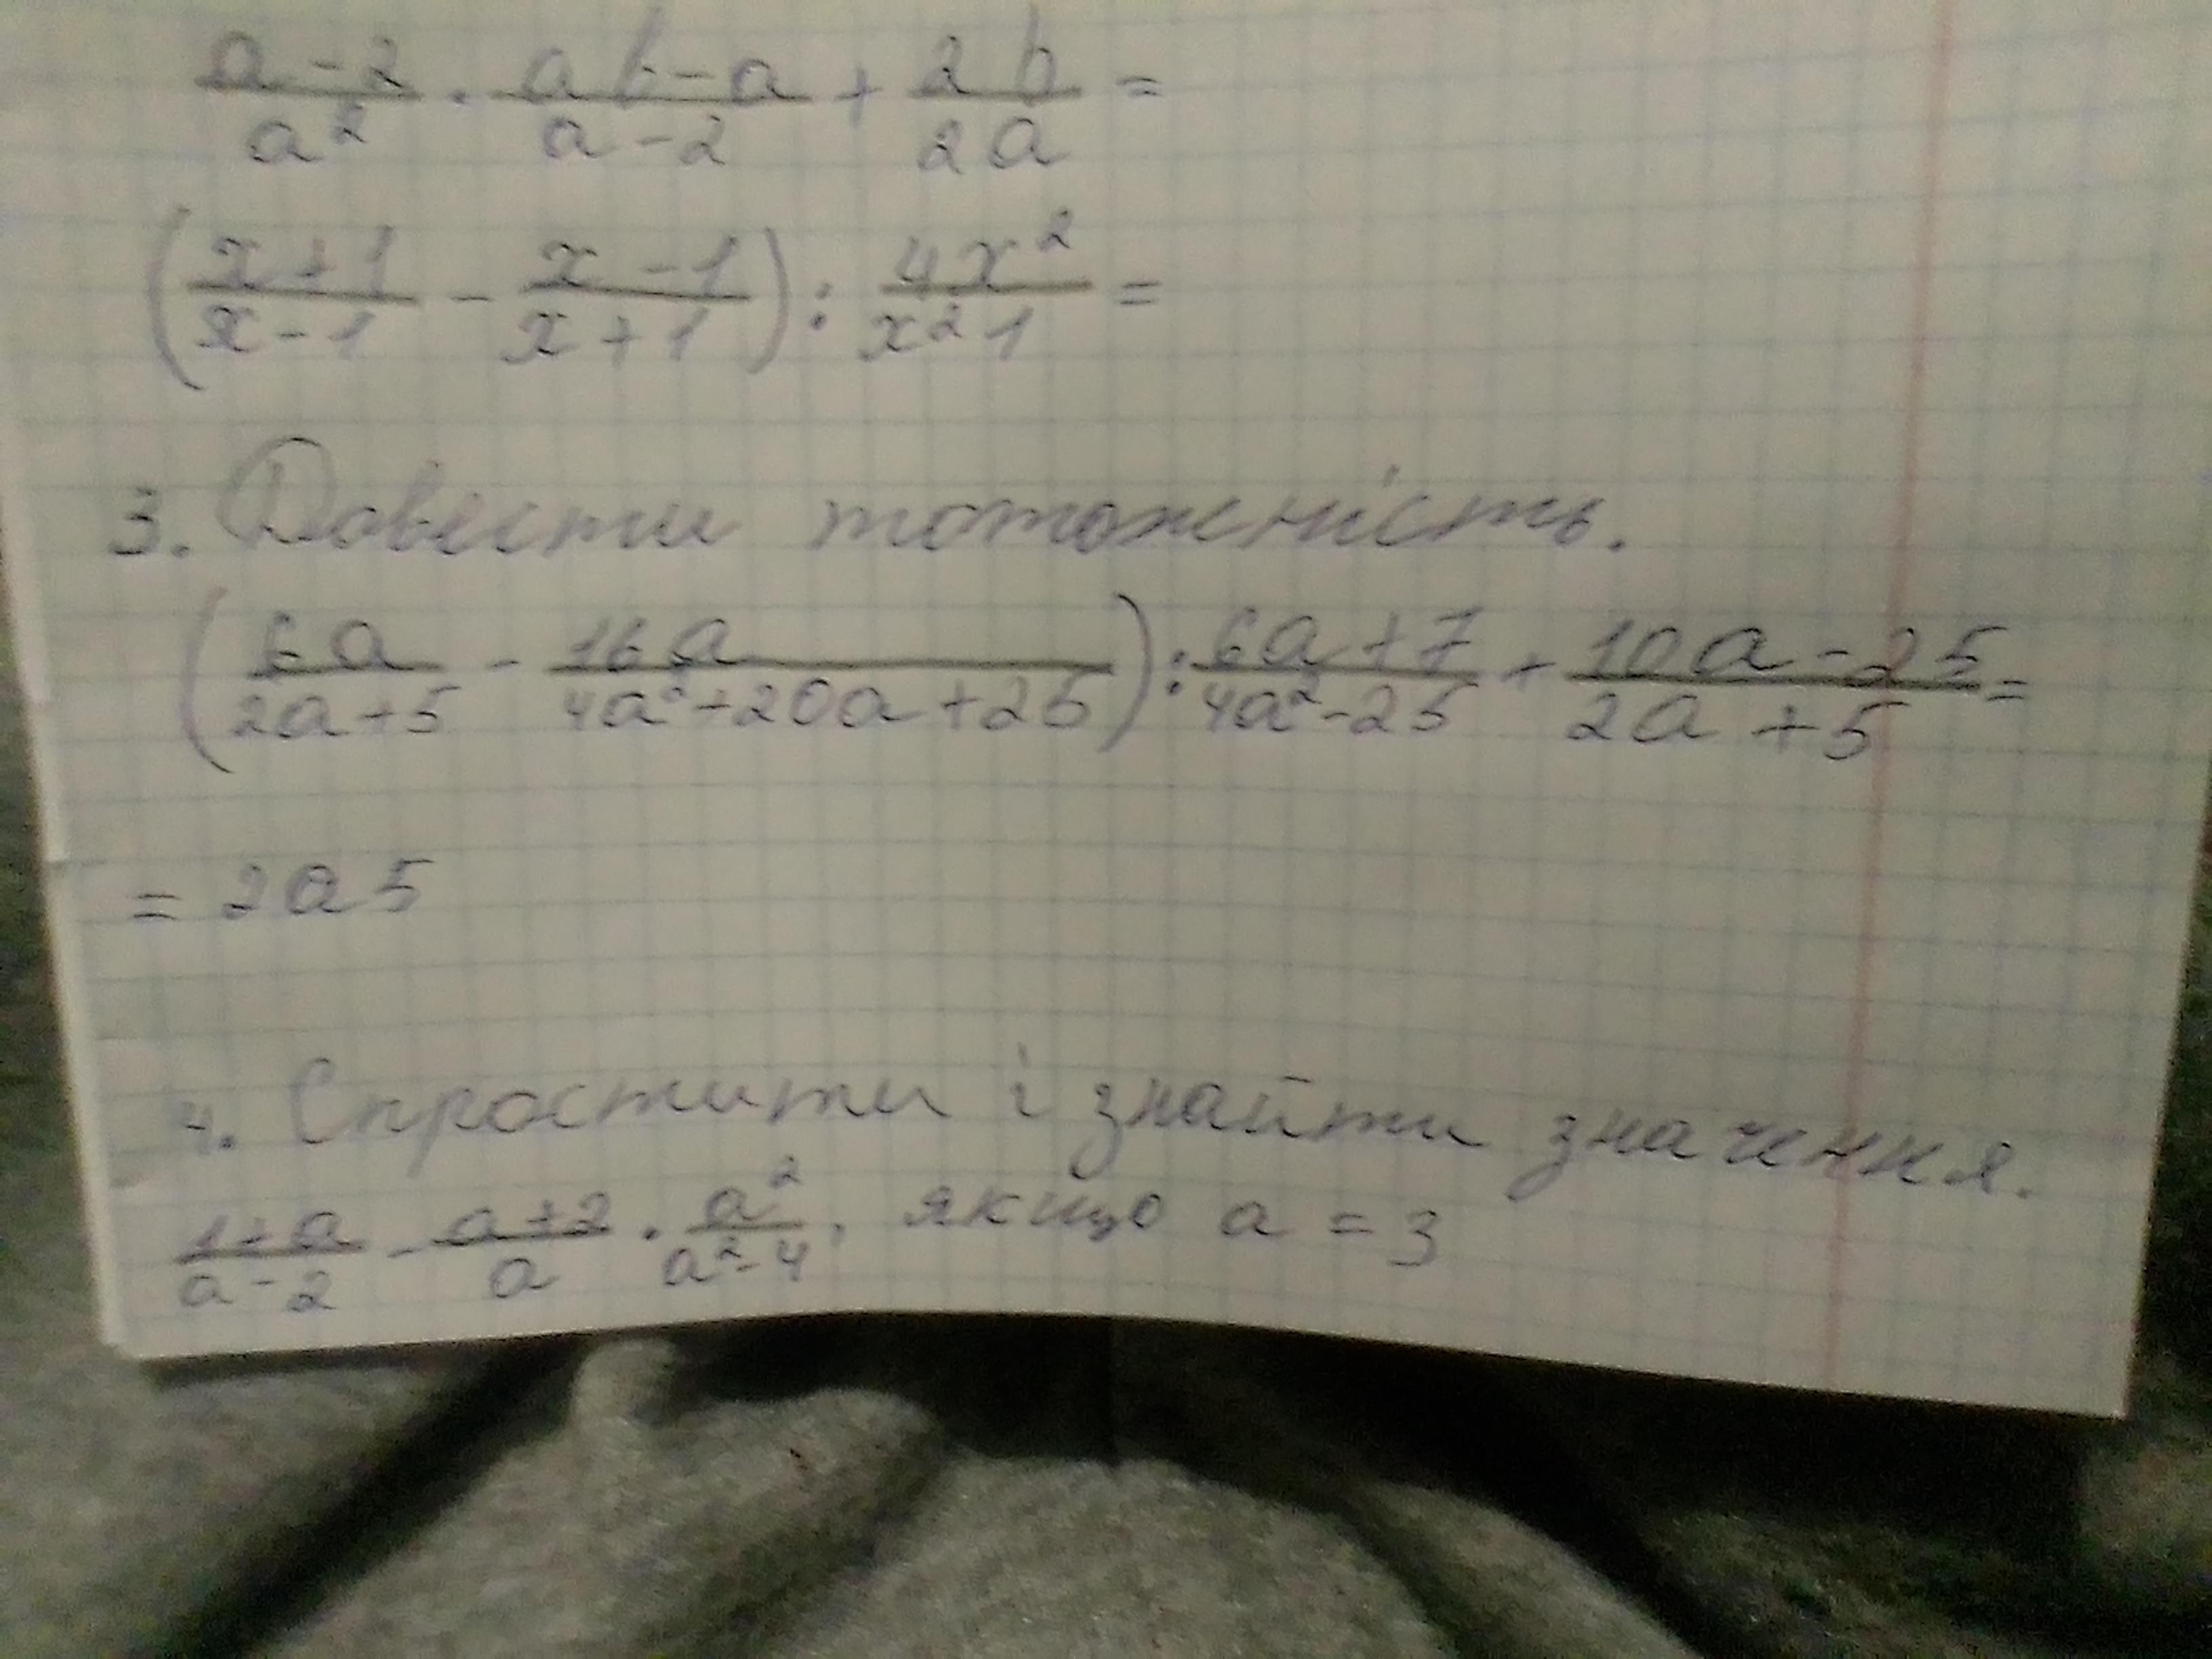 (a-2)/a² · (ab-a)/(a-2) + 2b/2a =
((x+1)/(x-1) - (x-1)/(x+1)) : 4x²/(x²1) =
3. Довести тотожність.
(6a/(2a+5) - 16a/(4a²+20a+25)) : (6a+7)/(4a²-25) + (10a-25)/(2a+5) =
= 2a5
4. Спростити і знайти значення.
(1+a)/(a-2) - (a+2)/a · a²/(a²-4), якщо a = 3